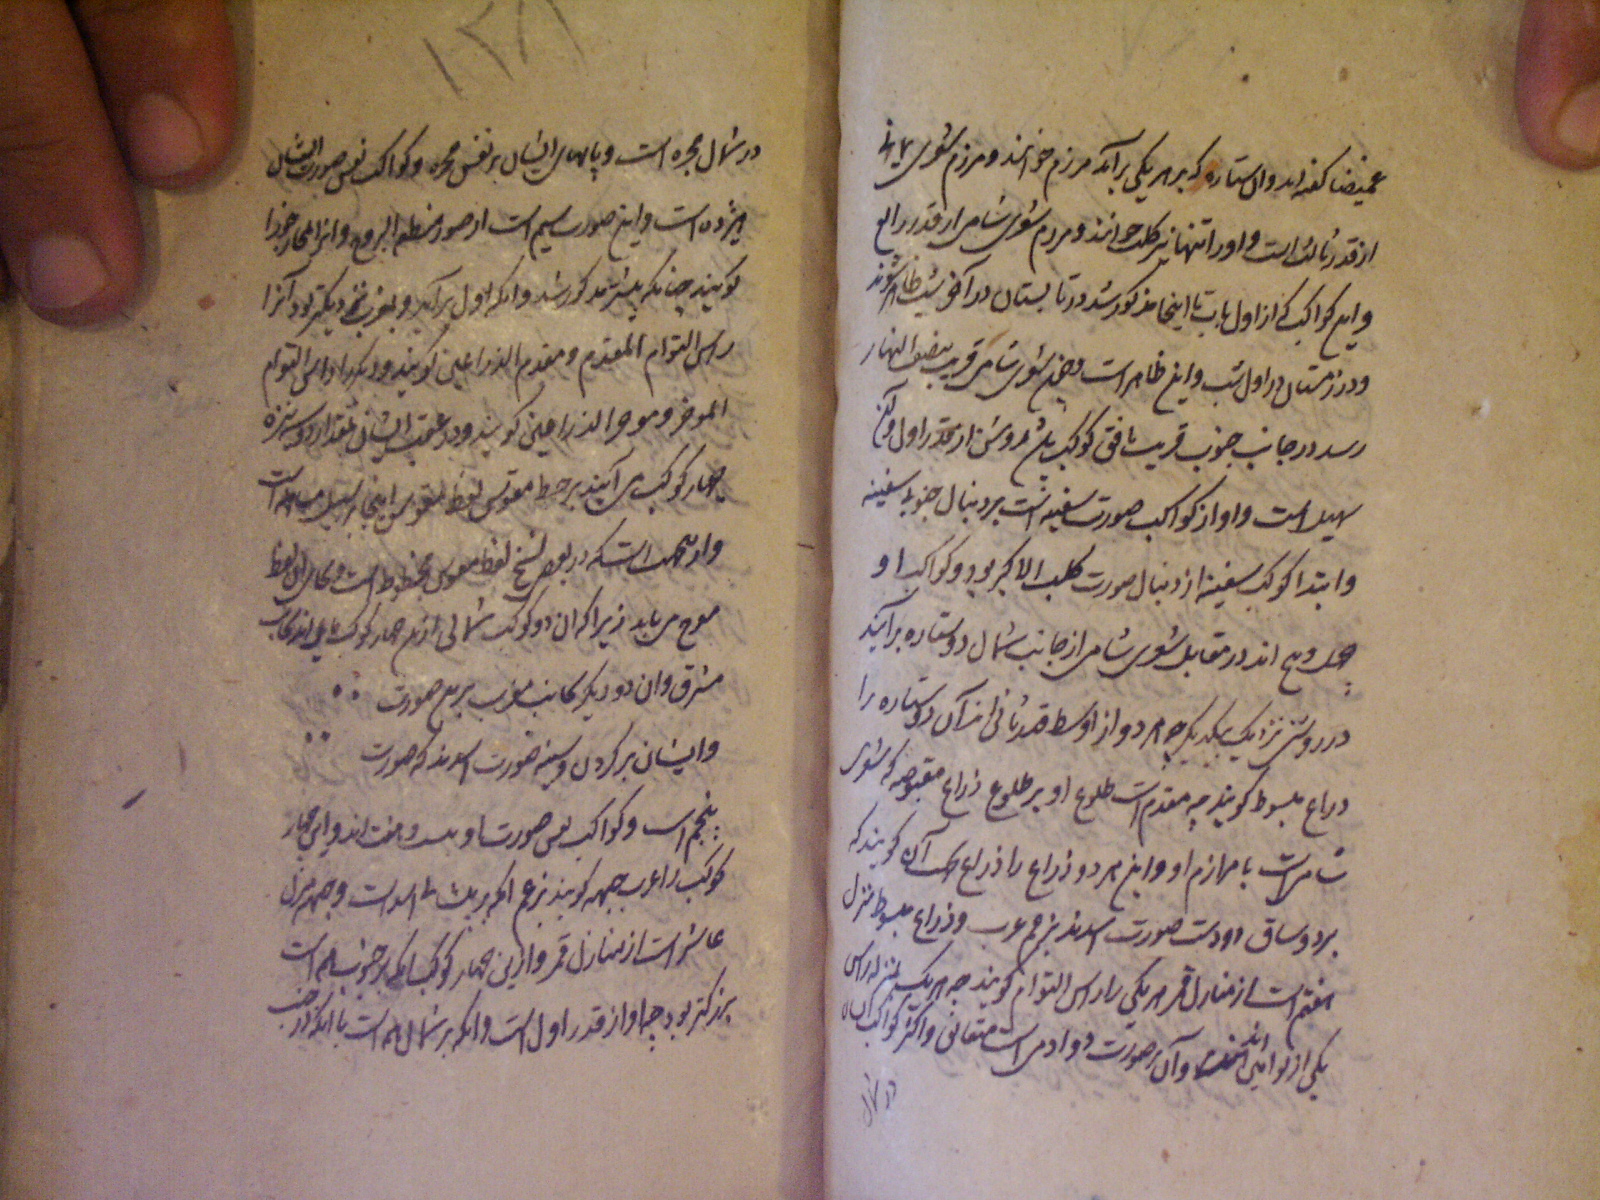 غمیضا گفته اند و آن ستاره که بر هر یکی برآید مرزم خوانند و مرزم شعری یمانی
از قدر ثالث است و او را تنها نیز کلب خوانند و مرزم شعری شامی از قدر رابع
و این کواکب که از اول باب تا اینجا مذکور شد در تابستان در آخر شب ظاهر شوند
و در زمستان در اول شب و این ظاهر است و چون شعری شامی قریب بنصف النهار
رسد در جانب جنوب قریب بافق کوکبی باشد روشن از قدر اول و آن
سهیل است و او از کواکب صورت سفینه است بر دنبال جنوبی سفینه
و ابتدا کوکب سفینه از دنبال صورت کلب الاکبر بود و کواکب او
چهل و پنج اند در مقابل شعری شامی از جانب شمال دو ستاره برآیند
در روشنی نزدیک بیکدیگر چه هر دو از اوسط قدر ثانی اند آن دو ستاره را
ذراع مبسوط گویند چه مقدم است طلوع او بر طلوع ذراع مقبوضه که شعری
شامی است با مرزم او و این هر دو ذراع را ذراع اسد گویند که
بر دو ساق دو دست صورت اسدند بزعم عرب و ذراع مبسوط منزل
هفتم است از منازل قمر هر یکی را راس التوام گویند چه هر یک بمنزله راس
یکی از توامین اند و آن بر صورت دو آدمی است متعانق و اکثر کواکب ایشان
در شمال
۱۰۲۸۱
در شمال مجره است و پاهای ایشان بر نفس مجره و کواکب نفس صورت ایشان
هژده است و این صورت سیم است از صور منطقة البروج و انرا مجاز جوزا
گویند چنانکه پیشتر مذکور شد و انکه اول برآید و بغرب نزدیکتر بود آنرا
راس التوام المقدم و مقدم الذراعین گویند و دیگر را راس التوام
الموخر و موخر الذراعین گویند و در عقب ایشان بمقدار دو نیزه
چهار کوکب می آیند بر خط مقوس لفظ مقوس اینجا بر سبیل مساهله است
و از اینجهت است که در بعض نسخ لفظ مقوس مخطوط است و بجای آن لفظ
معوج می باید زیرا که ان دو کوکب شمالی ازین چهار کوکب مایل اند بجانب
مشرق و ان دو دیگر بجانب مغرب برین صورت
و ایشان بر گردن و سینه صورت اسدند که صورت
پنجم است و کواکب نفس صورت او بیست و هفت اند و این چهار
کوکب را عرب جبهه گویند بزعم انکه بر پیشانی اسد است و جبهه منزل
عاشر است از منازل قمر و ازین چهار کوکب انکه بر جنوب همه است
بزرکتر بود چه او از قدر اول است و انکه بر شمال همه است با انکه در جنب